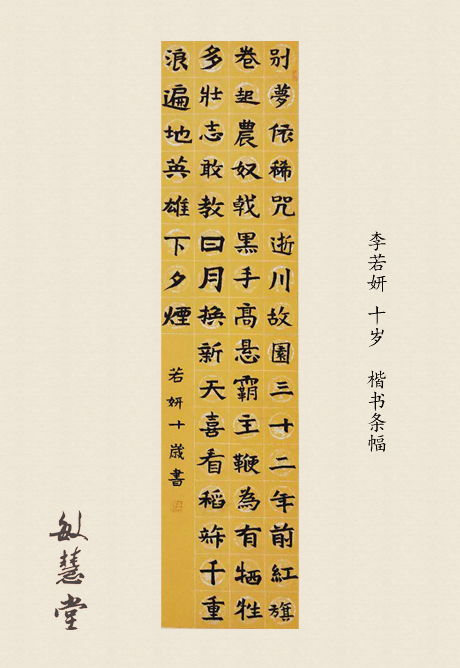 李若妍 十岁 楷书条幅
别夢依稀咒逝川故園三十二年前紅旗
卷起農奴戟黑手高悬霸主鞭為有牺牲
多壯志敢教日月换新天喜看稻菽千重
浪遍地英雄下夕煙
若妍十歲書
敏慧堂